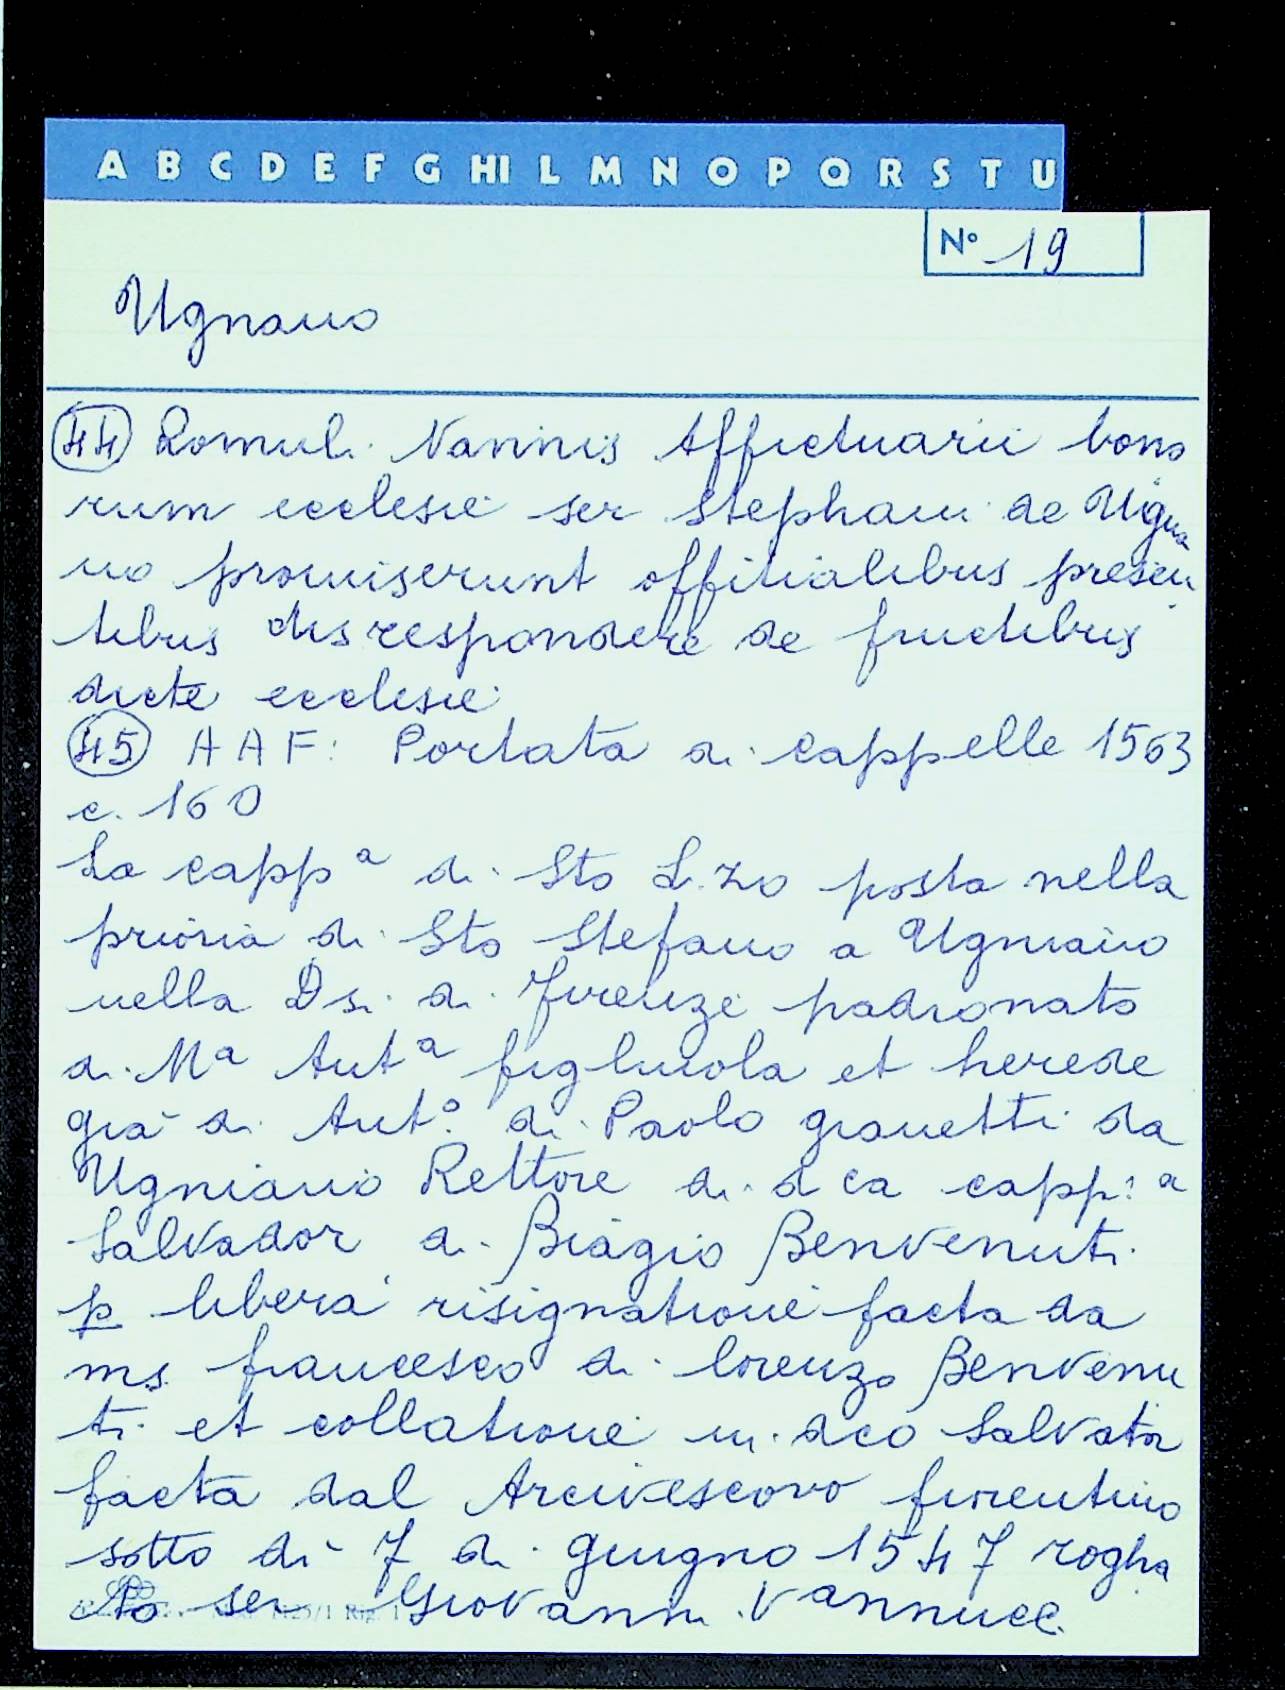 A B C D E F G HI L M N O P Q R S T U
N° 19
Ugnano
44 Romuli Nannis Affictuarii bono
rum ecclesie ser Stephani de Ugna
no promiserunt offitialibus presen
tibus respondere de fructibus
dicte ecclesie
45 AAF: Portata di cappelle 1563
c. 160
La capp a di Sto L.zo posta nella
prioria di Sto Stefano a Ugniano
nella Dsi di Firenze padronato
di Mª Antª figluiola et herede
già di Ant.º di Paolo gianetti da
Ugniano Rettore di dca capp: a
Salvador di Biagio Benvenuti
p libera risignatione facta da
ms francesco di lorenzo Benvenu
ti et collatione in dco Salvator
facta dal Arcivescovo fiorentino
sotto dì 7 di giugno 1547 rogha
to ser Giovanni Vannucc.